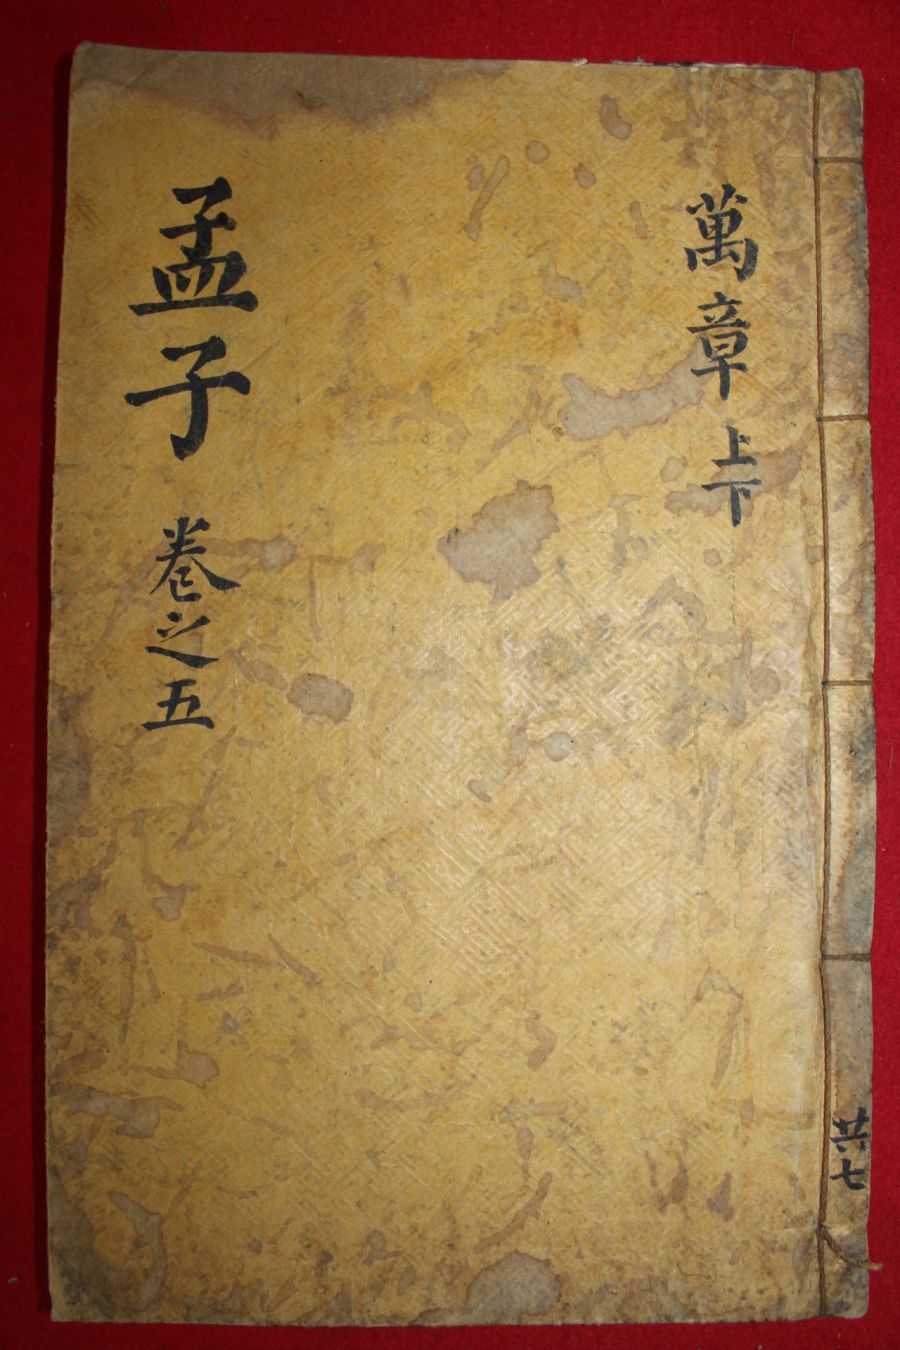 孟子 卷之五
萬章 上下
共七